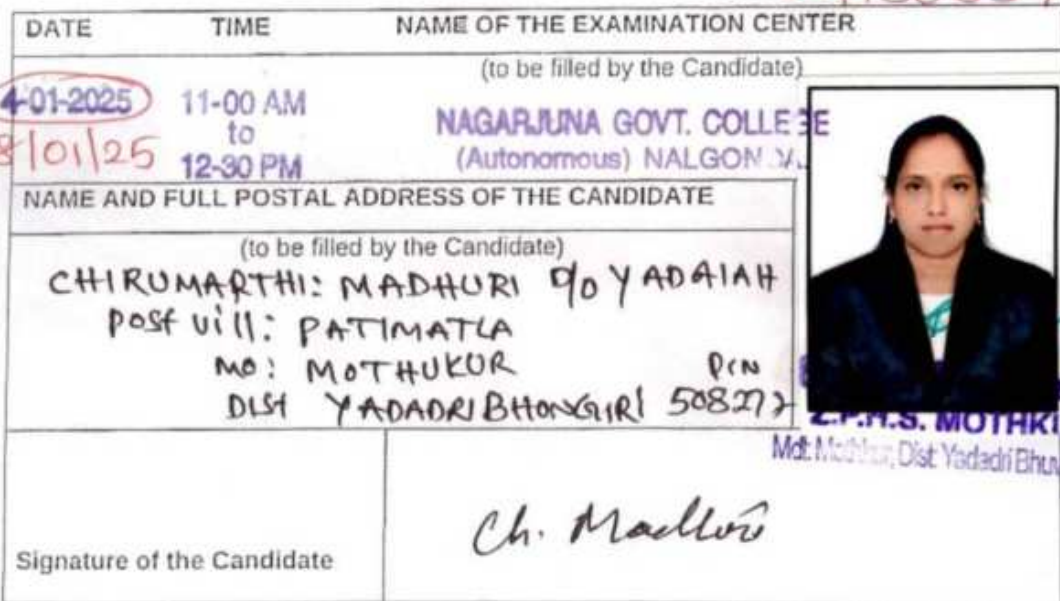 DATE TIME NAME OF THE EXAMINATION CENTER
(to be filled by the Candidate)
4-01-2025 11-00 AM
to
12-30 PM
NAGARJUNA GOVT. COLLEGE
(Autonomous)
/01/25
NAME AND FULL POSTAL ADDRESS OF THE CANDIDATE
(to be filled by the Candidate)
CHIRUMARTHI: MADHURI D/o YADAIAH
Post vill: PATIMATLA
MD: MOTHUKUR PIN
DIST YADADRI BHONGIRI 508277
Z.P.H.S. MOTHK
Dist Yadadri Bhuv
Signature of the Candidate
Ch. Madhuri